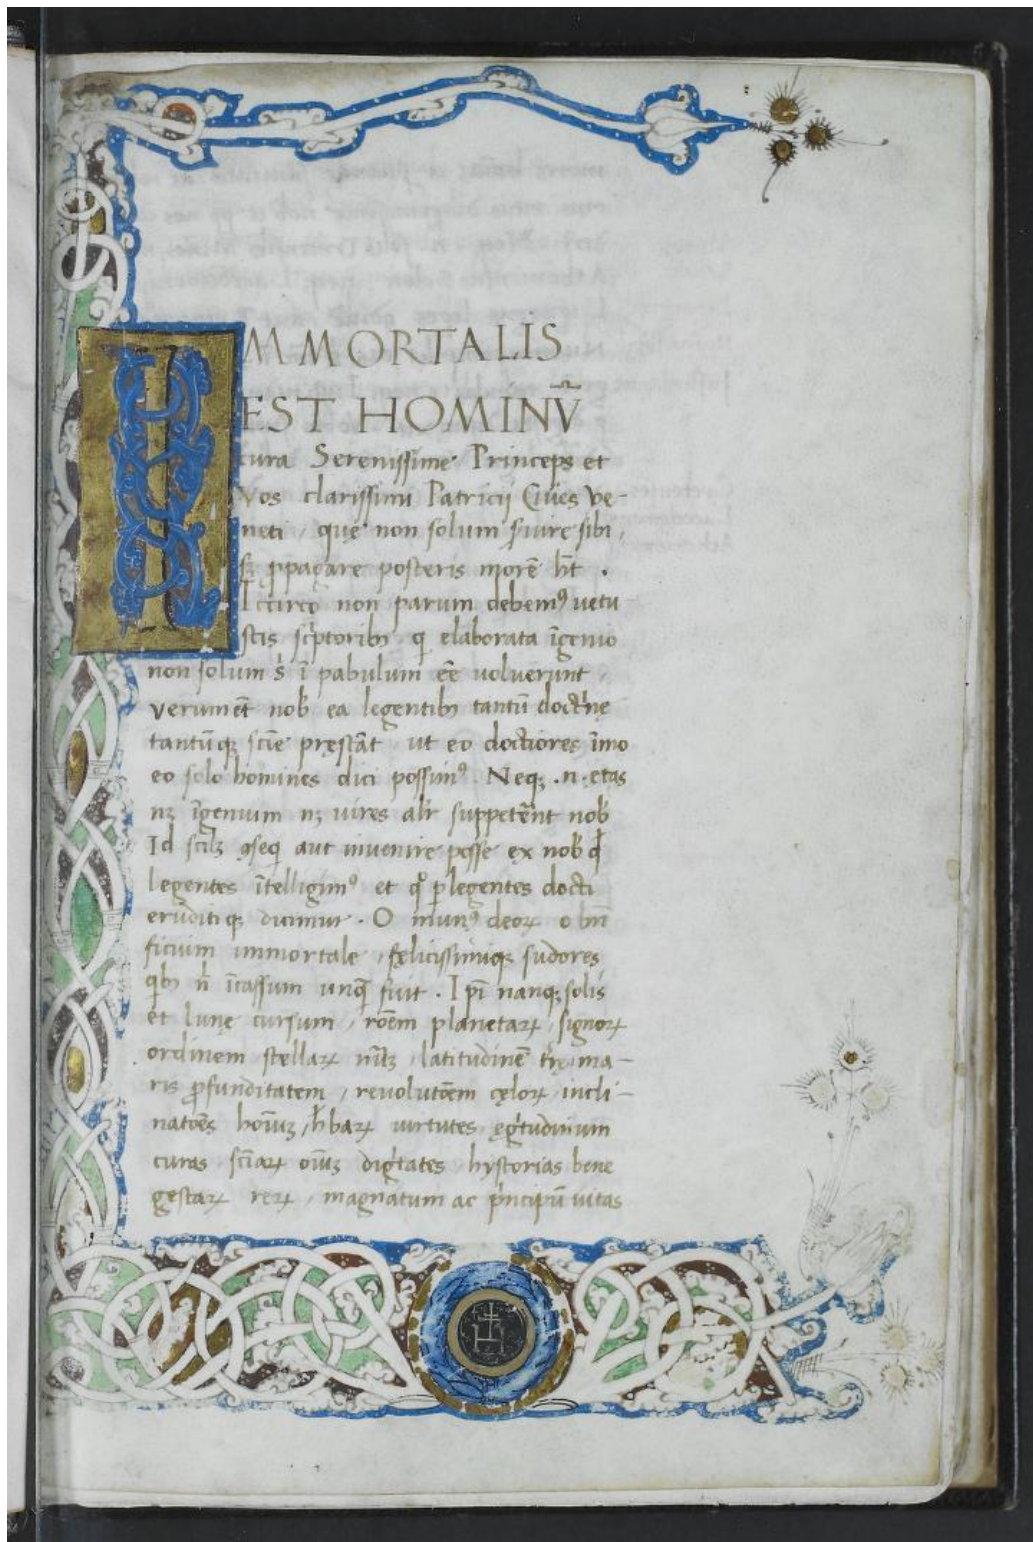 IMMORTALIS
EST HOMINŪ
cura Serenissime Princeps et
Vos clarissimi Patricij Ciues Ve-
neti, que non solum s̄uire sibi,
sꝫ ꝓpagare posteris morē h̄t .
Iccirco non parum debemꝰ uetu
stis sc̓ptoribꝫ q̇ elaborata īgenio
non solum s̓ ī pabulum eē uoluerunt,
verumēt nob̓ ea legentibꝫ tantū doct̓ne
tantūqꝫ scīe pręstāt, ut eo doctiores īmo
eo solo homines dici possimꝰ. Neqꝫ .n. etas
nꝫ īgenium nꝫ uires alr̄ suppetēnt nob̓
Id scilꝫ ꝯseq̇ aut inuenire posse ex nob̓ qđ
legentes ītelligimꝰ et qͦ ꝑlegentes docti
eruditiqꝫ dicimur. O munꝰ deoꝝ o bn̄
ficium immortale, fęlicissimiqꝫ sudores
q̇bꝫ n̄ īcassum unq̄ fuit. Ipī nanqꝫ solis
et lunę cursum, rōem planetaꝝ, signoꝝ
ordinem stellaꝝ nūꝫ, latitudinē t̄rę, ma-
ris ꝓfunditatem, reuolutōem cęloꝝ, incli-
natōes hoīuꝫ, h̓baꝝ uirtutes, ęg̓tudinum
curas, scīaꝝ oīuꝫ dig̓tates, hystorias bene
gestaꝝ reꝝ, magnatum ac p̓ncipū uitas